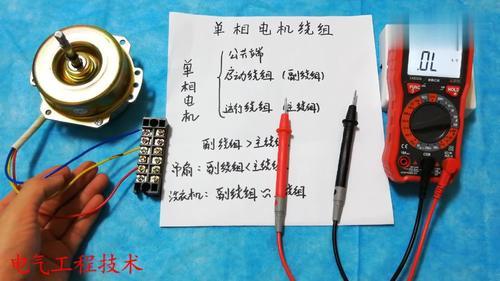 单相电机绕组
单相电机
公共端
启动绕组 (副绕组)
运行绕组 (主绕组)
副绕组 > 主绕组
吊扇: 副绕组 < 主绕组
洗衣机: 副绕组 主绕组
.0L
FUNC
HOLD
COM
电气工程技术